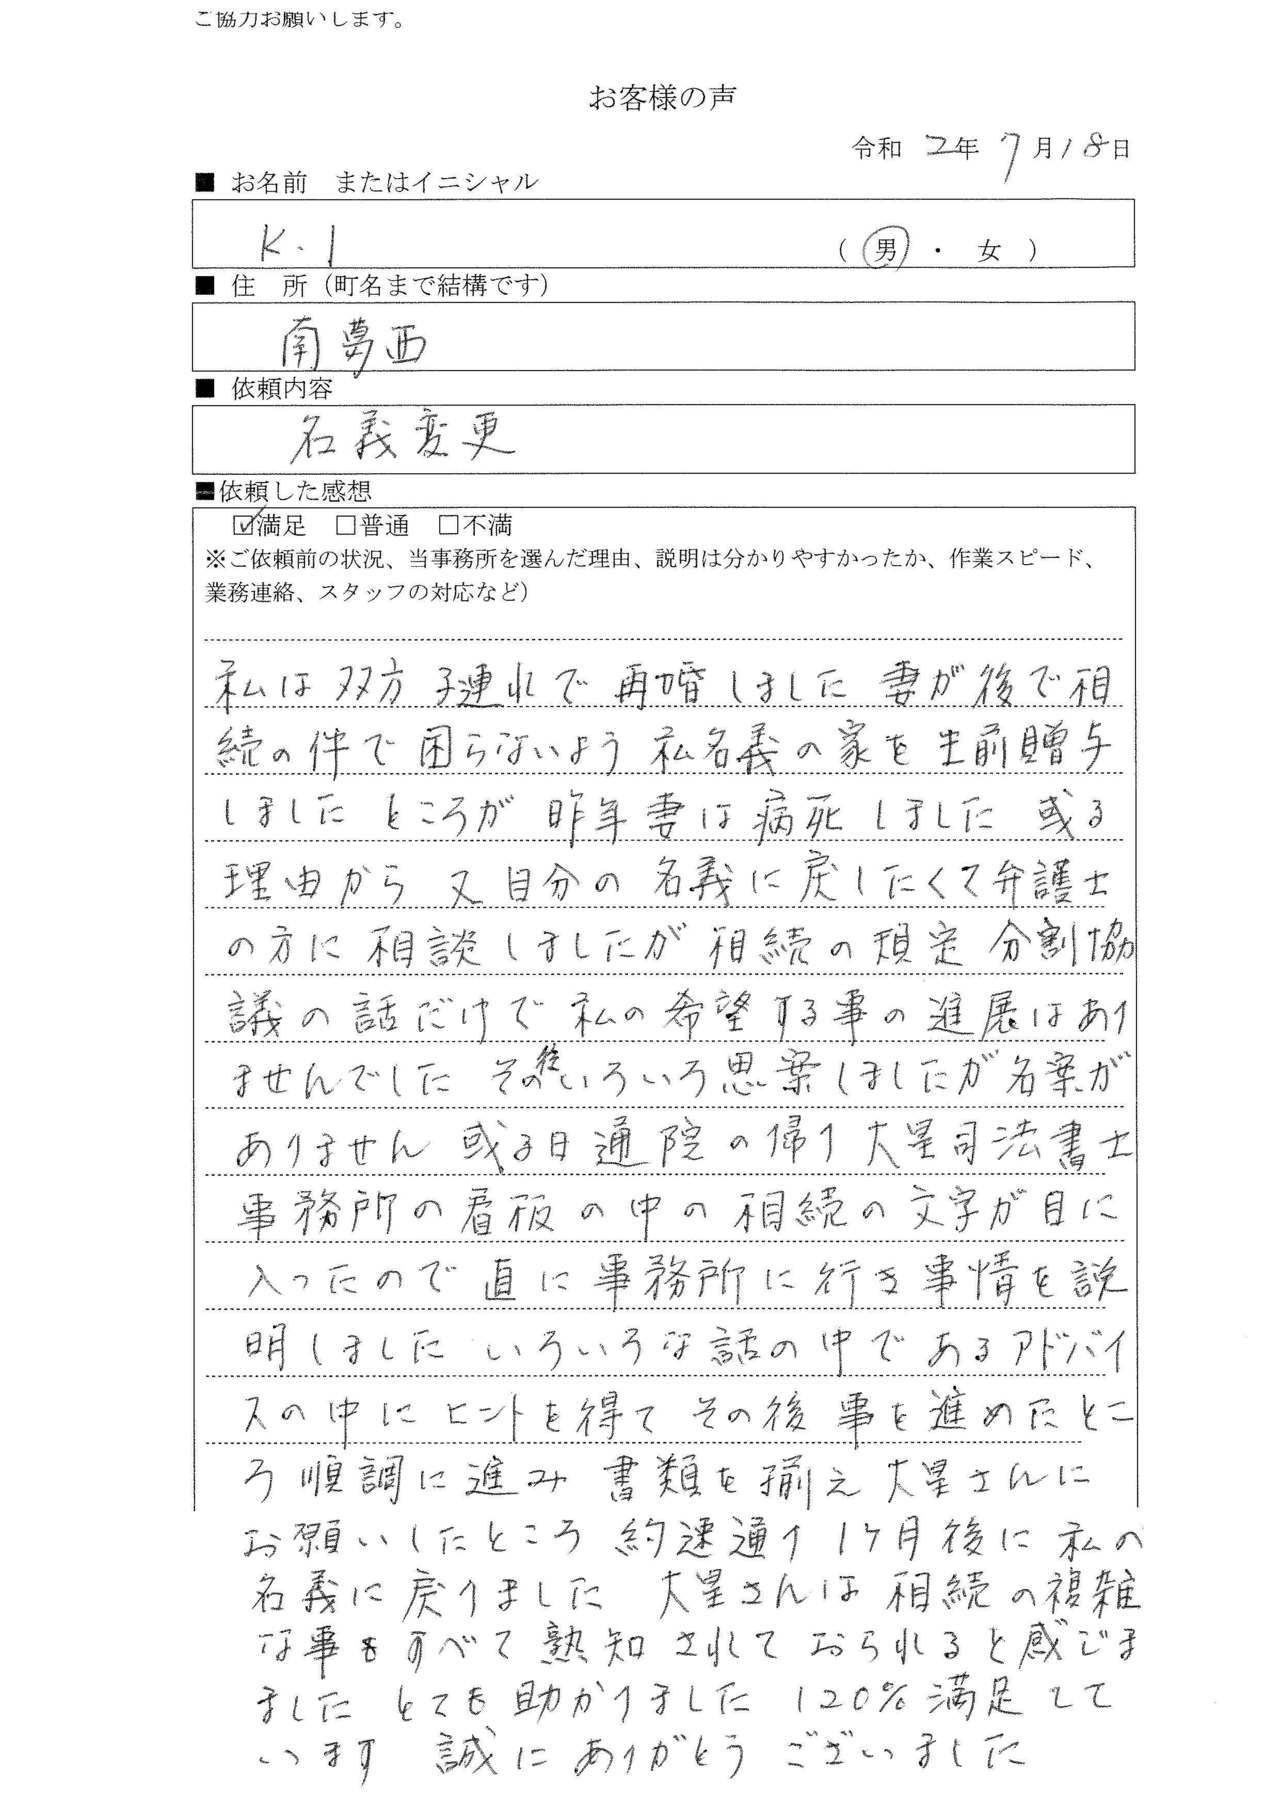 ご協力お願いします。
お客様の声
令和 2年 7月18日
■ お名前 またはイニシャル
K.I
( 男 ・ 女 )
■ 住 所（町名まで結構です）
南夢西
■ 依頼内容
名義変更
■依頼した感想
☑満足 □普通 □不満
※ご依頼前の状況、当事務所を選んだ理由、説明は分かりやすかったか、作業スピード、
業務連絡、スタッフの対応など）
私は双方 子連れで 再婚しました 妻が後で相
続の件で困らないよう 私名義の家を生前贈与
しました ところが 昨年妻は病死しました 或る
理由から 又 自分の 名義に戻したくて弁護士
の方に 相談しましたが 相続の規定 分割協
議の話だけで 私の希望する事の進展はあり
ませんでした その後いろいろ思案しましたが名案が
ありません 或る日通院の帰り 大星司法書士
事務所の看板の中の相続の文字が目に
入ったので 直に事務所に行き事情を説
明しました いろいろな話の中で あるアドバイ
スの中に ヒントを得て その後 事を進めたとこ
ろ 順調に進み 書類を揃え 大星さんに
お願いしたところ 約束通り 1ケ月後に 私の
名義に戻りました 大星さんは 相続の複雑
な事もすべて熟知されて おられると感じま
ました とても助かりました 120%満足して
います 誠に ありがとう ございました